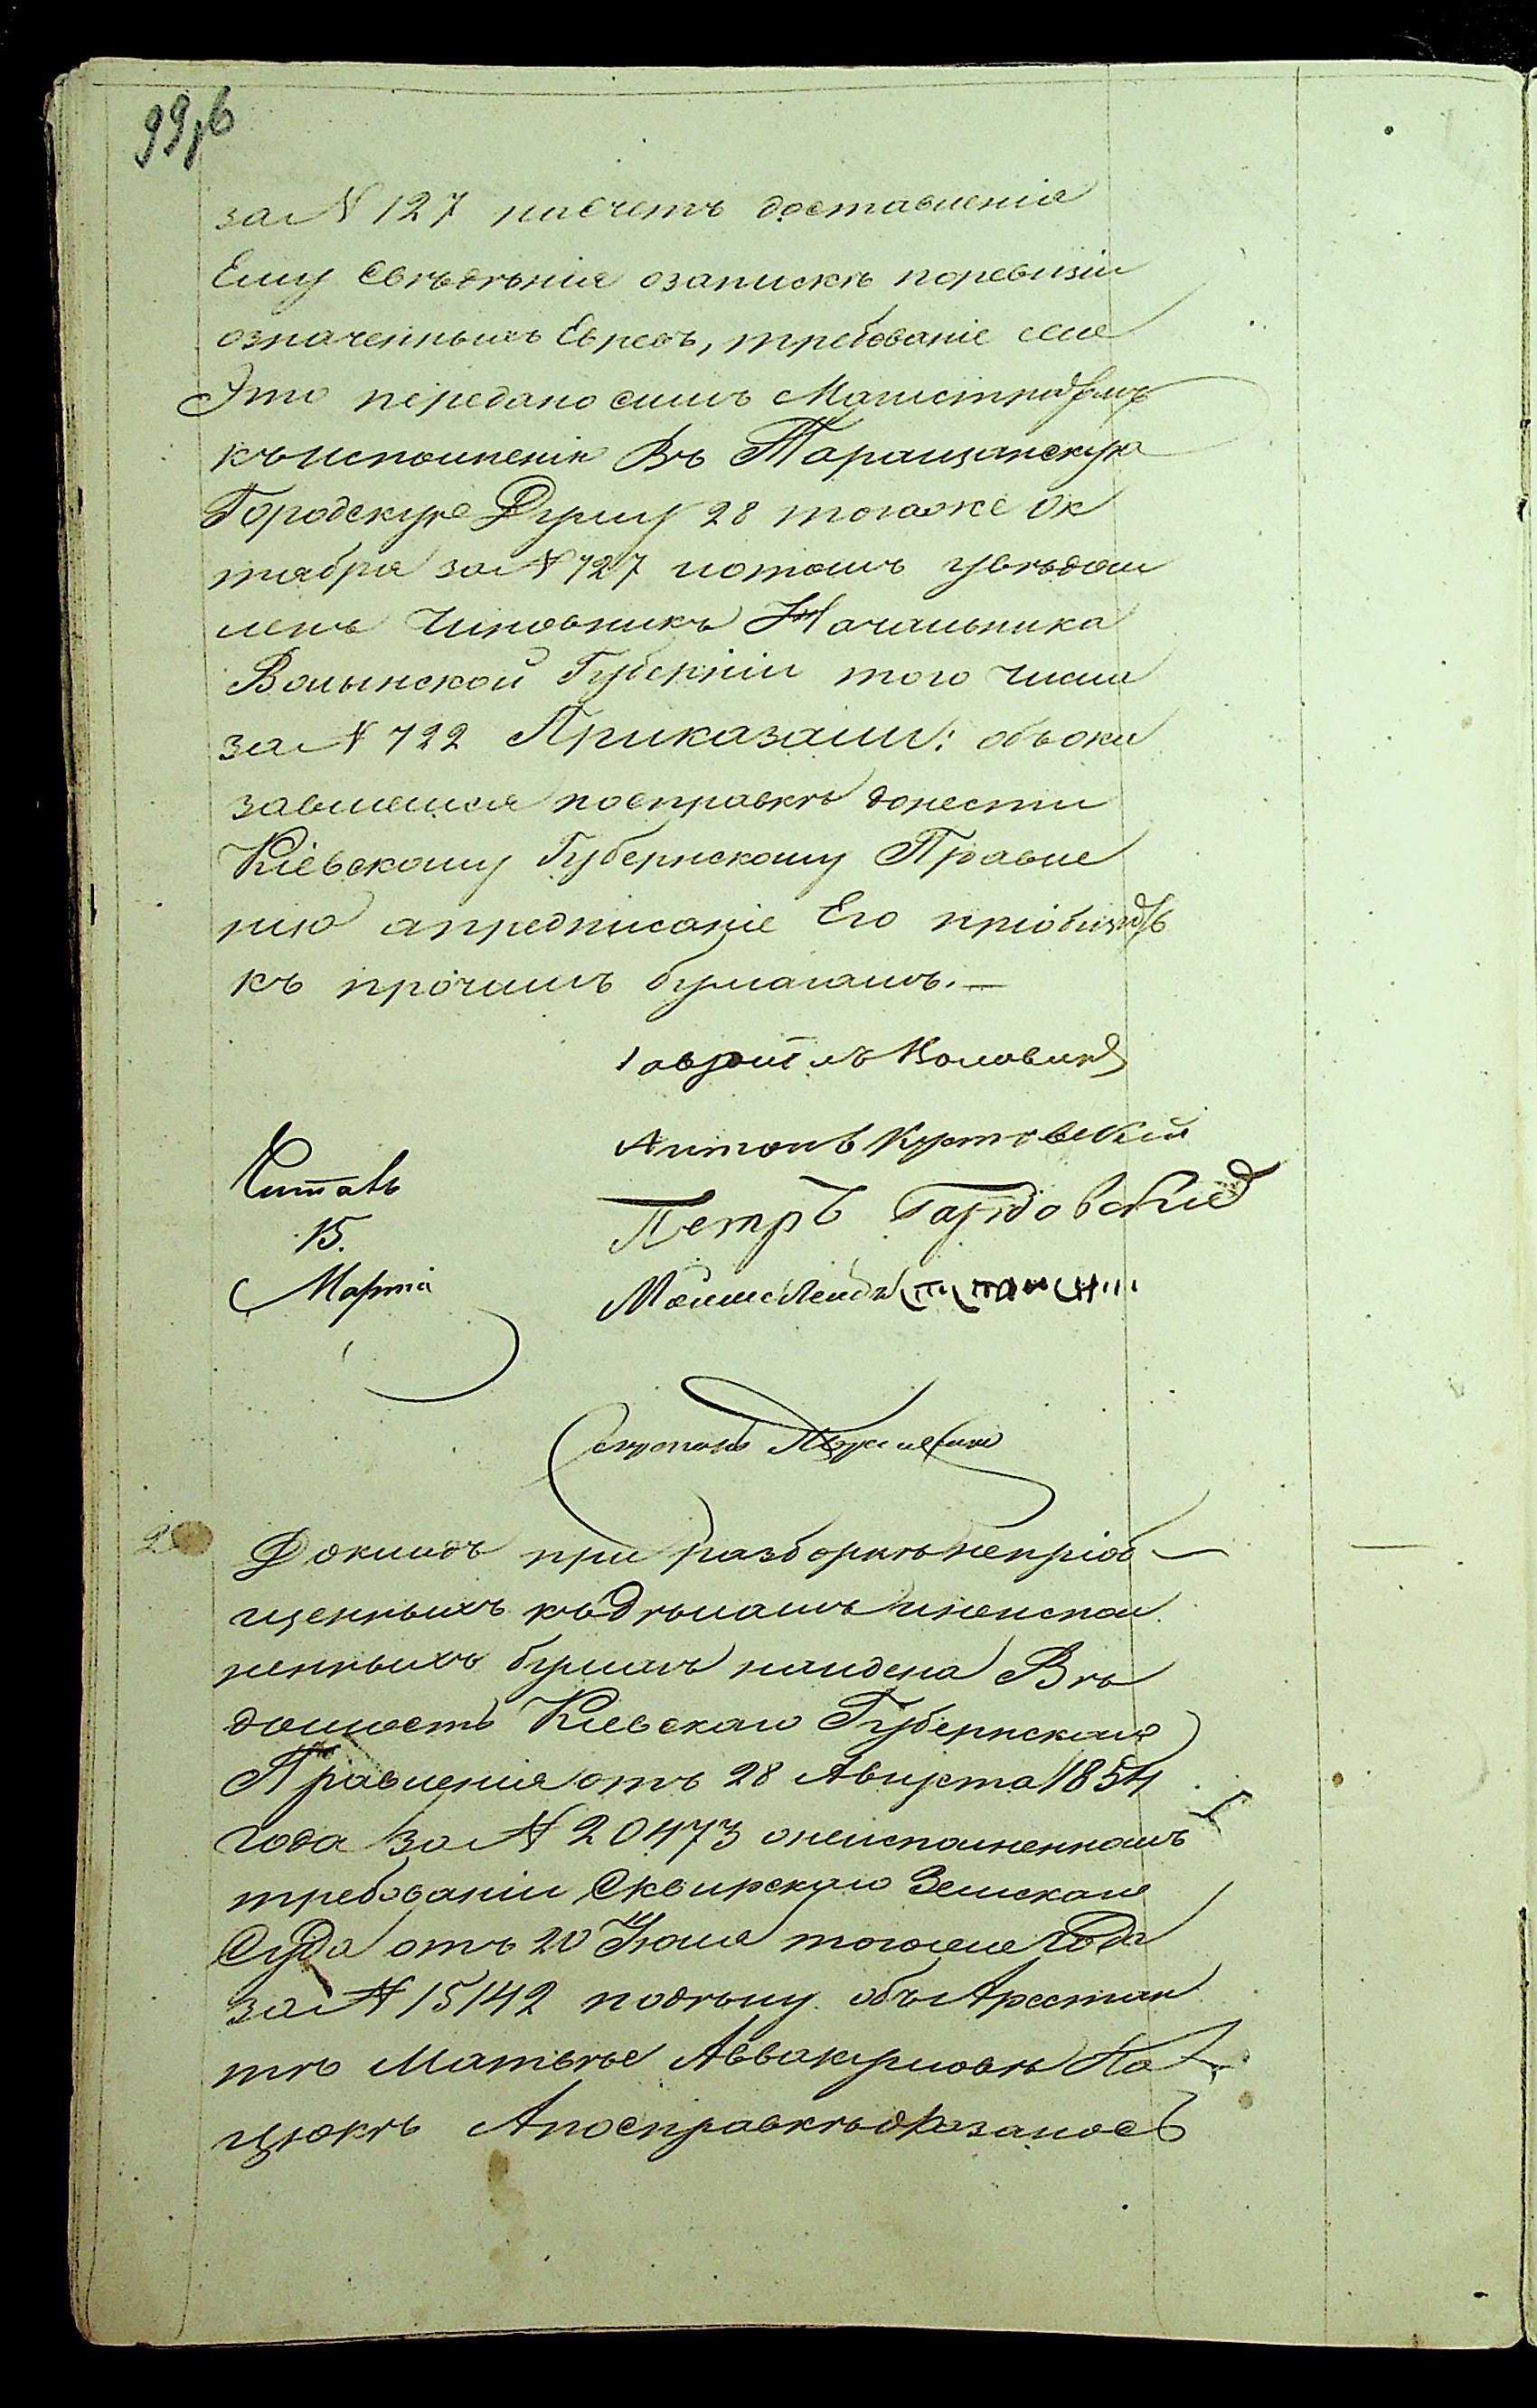 99
за N 127 насчетъ доставленія
Ему Свѣдѣнія озапискѣ поревизіи
означенныхъ Евреевъ, требованіе сіе
Это передано симъ Магистратомъ
къ исполненію Въ Таращанскую
Городскую Думу 28 тогоже Ок
тября за N 727 и отомъ увѣдом
ленъ Чиновникъ Начальника
Волынской Губерніи того числа
за N 722 Приказали: объока
завшемся посправкѣ донести
Кіевскому Губернскому Правле
нію а предписаніе Его пріобщить
къ прочимъ бумагамъ.—
Антонъ Кутовскій
Петръ
Читалъ
15.
Марта
2
Докладъ при разборкѣ непріоб—
щенныхъ къ дѣламъ инеиспол
ненныхъ бумагъ найдена Вѣ
домость Кіевскаго Губернскаго
Правленія отъ 28 Августа 1854
года за N 20473 онеисполненномъ
требованіи Сквирскаго Земскаго
Суда отъ 20 Іюля тогоже года
за N 15142 подѣлу объ Арестан
тѣ Матвѣе Аввакумовѣ Па
цюкѣ Апосправкѣ оказалось